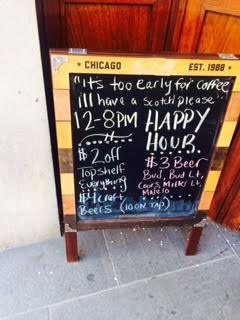 CHICAGO EST. 1988
"It's too early for coffee
I'll have a scotch please"
12-8PM HAPPY
HOUR
$2 off
Topshelf
Everything
$4 craft
Beers (10 ON TAP)
$3 Beer
Bud, Bud Lt,
Coors, Miller Lt,